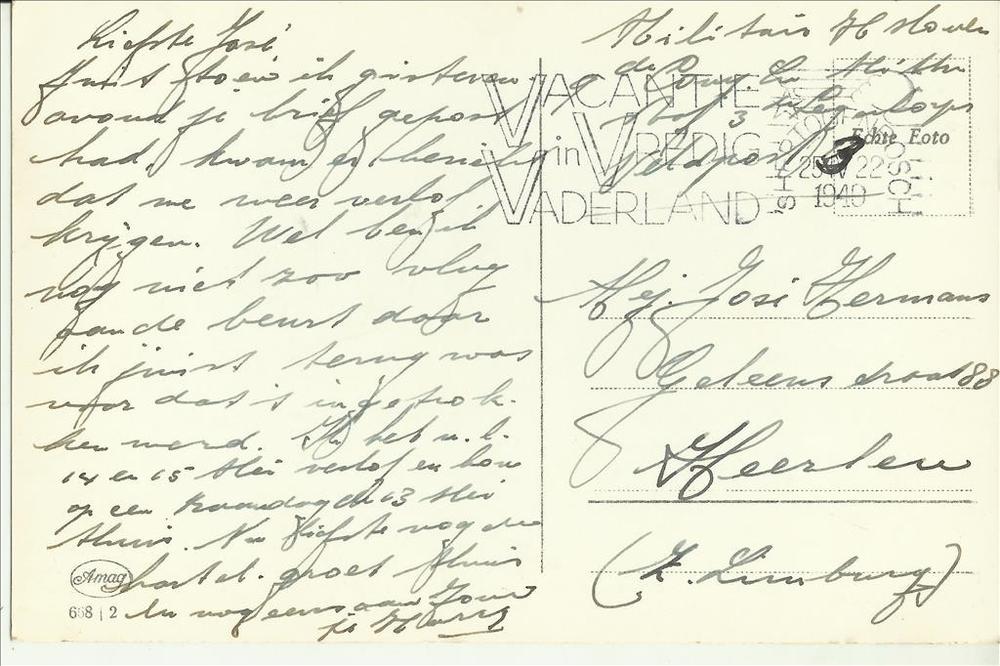 Liefste José
Juist toen ik gisteren
avond je brief gepost
had, kwam er bericht
dat we weer verlof
krijgen. Wel ben ik
nog niet zoo vlug
aan de beurt daar
ik juist terug was
voor dat 't ingetrok-
ken werd. Ik heb n.l.
14 en 15 Mei verlof en kom
op een Maandag de 13 Mei
thuis. Nu liefste nog de
hartel. groet thuis
En nog eens aan Jou
je Harry
Amag
668 | 2
Militair H
de Comp. Mitr.
3 Leg. Corps
Veldpost
VACANTIE
in VREDIG
VADERLAND
Echte Foto
'S HERTOGENBOSCH
25 IV 22
1940
Mej. José Hermans
Geleenstraat 88
Heerlen
(Z. Limburg)